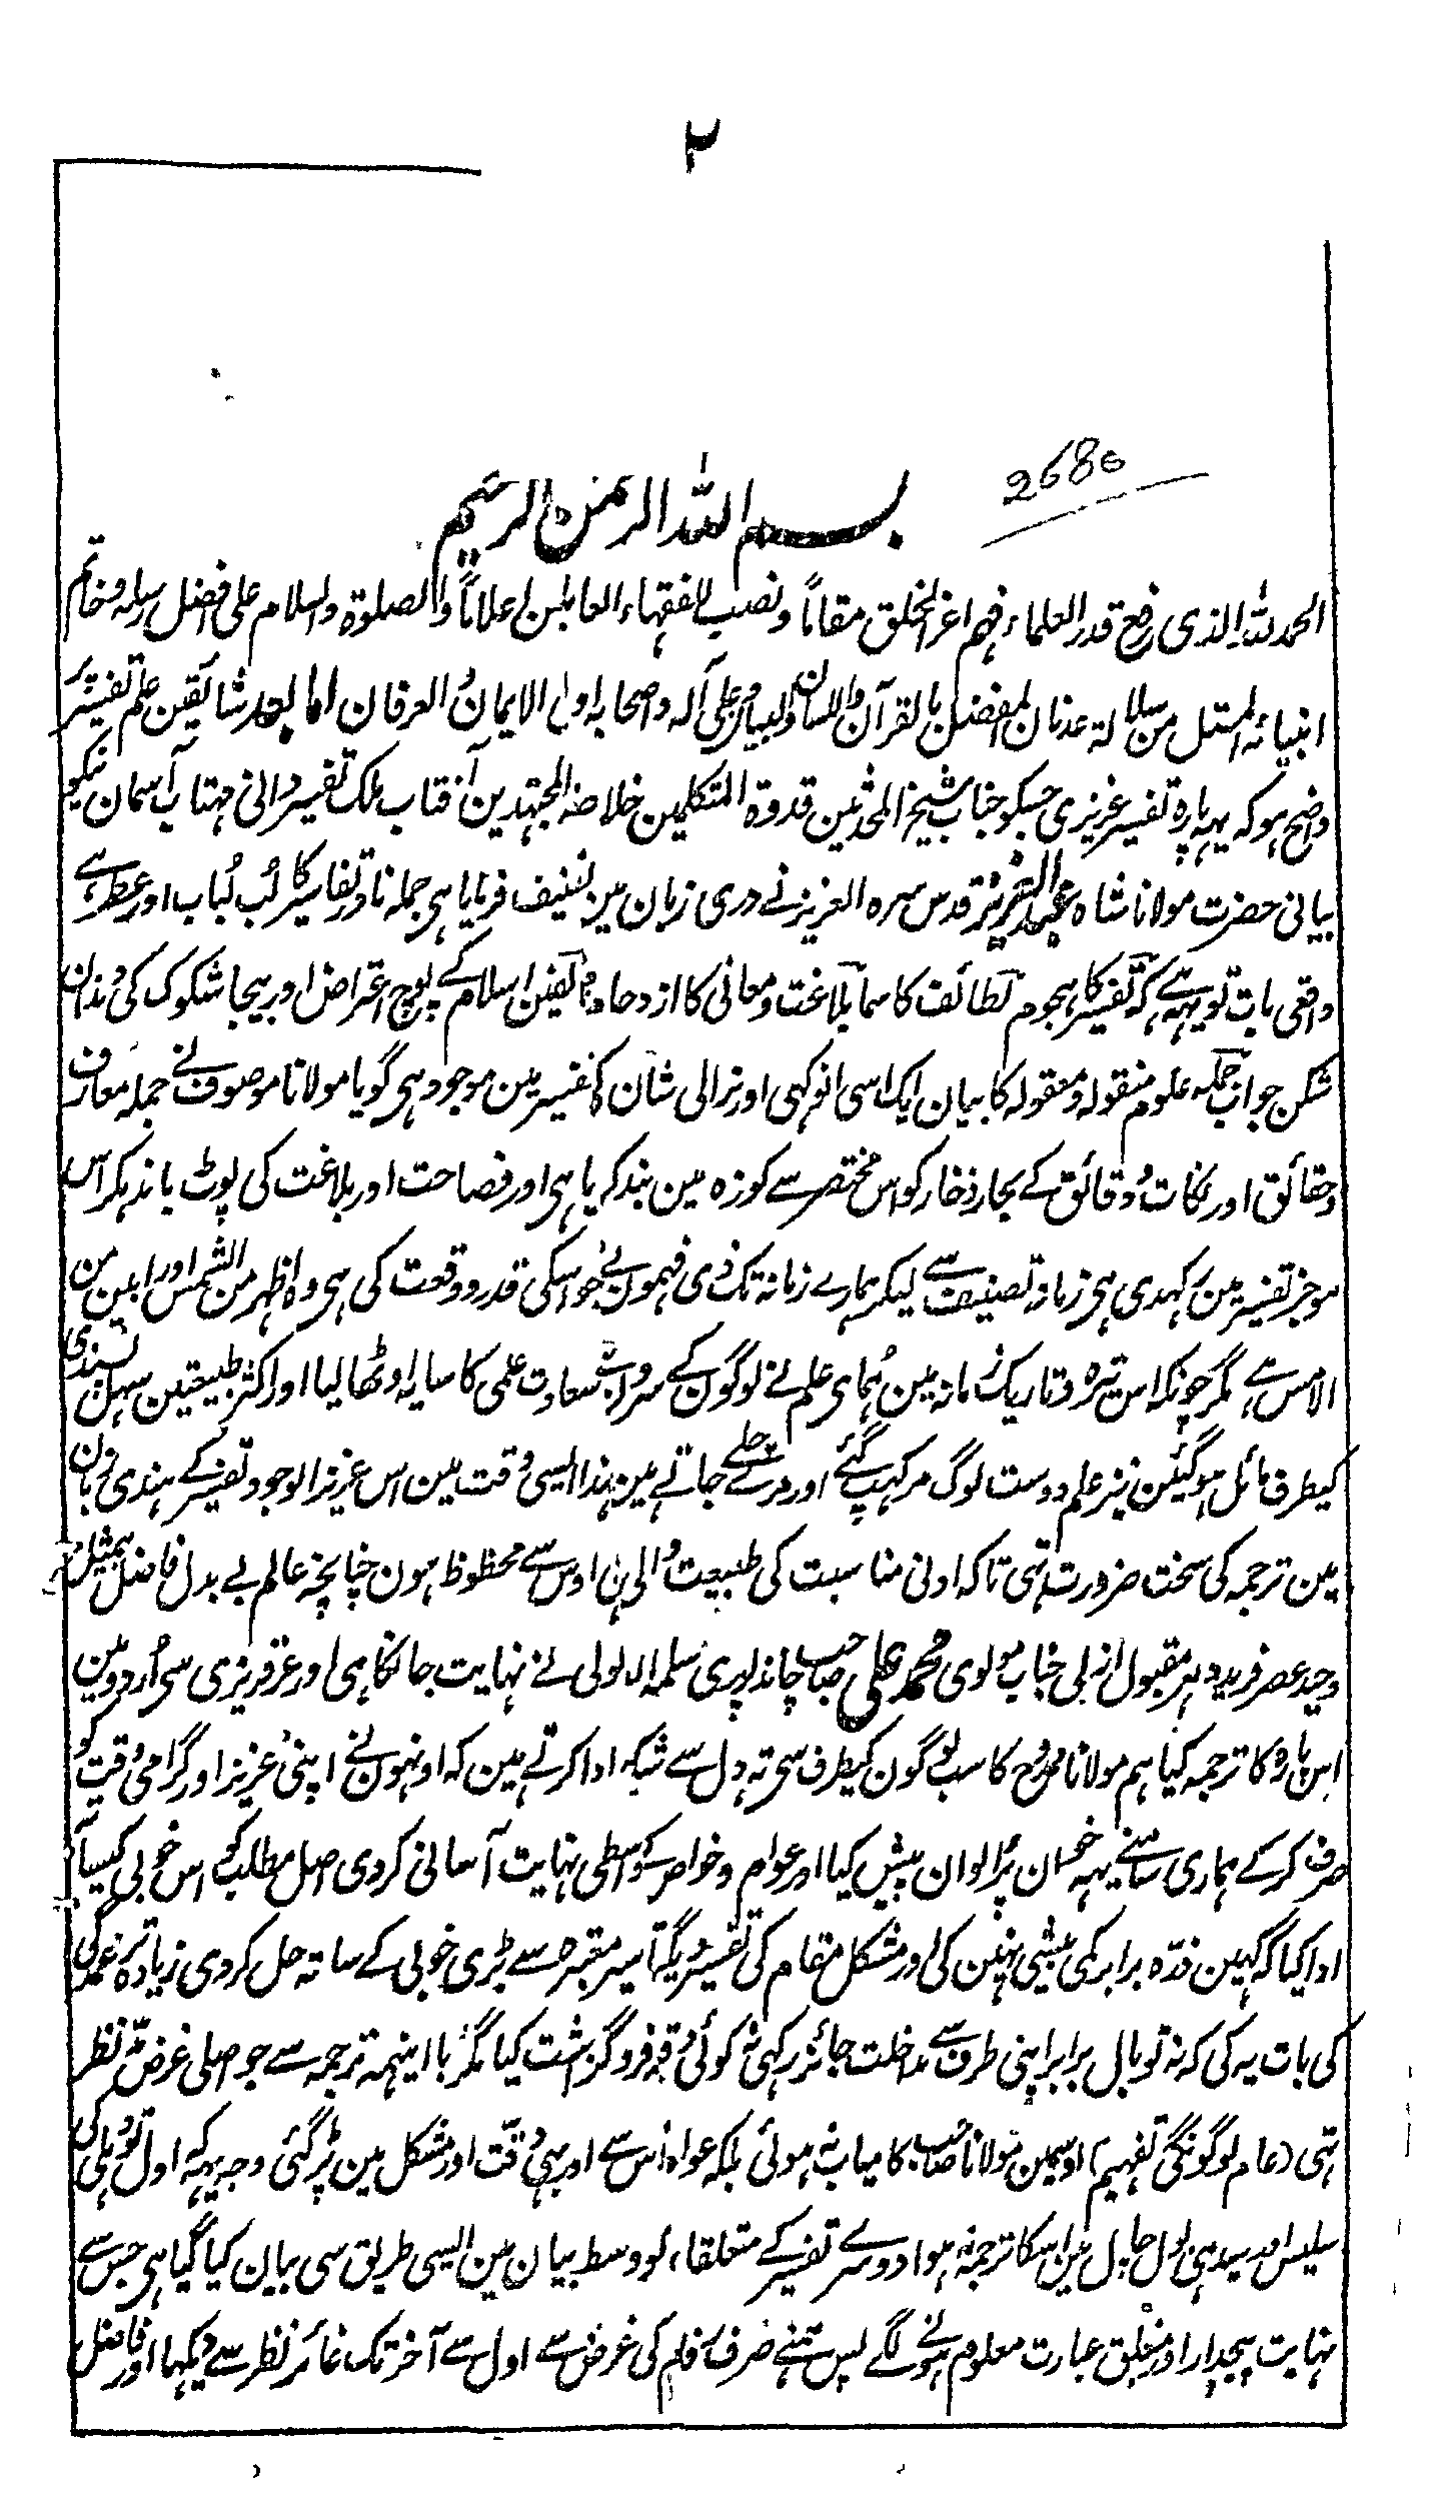 ۲
2680
بسم الله الرحمن الرحیم
الحمد لله الذی رفع قدر العلماء فہم اعز الخلق مقاماً و نصب للفقہاء العاملین اعلاناً والصلوۃ والسلام علی افضل رسلہ و خاتم
انبیائہ المستل من سلالۃ عدنان المفضل بالقرآن واللسان والبیان و علی آلہ و اصحابہ اولی الایمان و العرفان اما بعد شائقین علم تفسیر پر
واضح ہو کہ یہہ پارہ تفسیر عزیزی جسکو جناب شیخ المحدثین قدوۃ المتکلمین خلاصۃ المجتہدین آفتاب ملک تفسیر دانی مہتاب آسمان نیکو
بیانی حضرت مولانا شاہ عبد العزیز قدس سرہ العزیز نے دری زبان مین تصنیف فرمایا ہی جملہ نادر تفاسیر کا لُب لُباب اور عطر ہے
واقعی بات تو یہہ ہے کہ تفسیر کا ہجوم لطائف کا سما بلاغت و معانی کا ازدحام مخالفین اسلام کے پوچ اعتراض اور بیجا شکوک کی دندان
شکن جواب جملہ علوم منقولہ و معقولہ کا بیان ایک اسی انوکہی اور نرالی شان کی تفسیر مین موجود ہی گویا مولانا موصوف نے جملہ معارف
و حقائق اور نکات و دقائق کے بحار ذخار کو اس مختصر سے کوزہ مین بند کر دیا ہی اور فصاحت اور بلاغت کی پوٹ باندہکر اس
موجز تفسیر مین رکہدی ہی زمانہ تصنیف سے لیکر ہمارے زمانہ تک ذی فہمون نے جو اسکی قدر و وقعت کی ہی وہ اظہر من الشمس اور ابین من
الامس ہے مگر چونکہ اس تیرہ و تاریک زمانہ مین ہُمای علم نے لوگون کے سرون سے سعادت علمی کا سایہ اوٹھا لیا اور اکثر طبیعتین سہل پسندی
کیطرف مائل ہو گیئن نیز علم دوست لوگ مر کہپ گئے اور مرتے چلے جاتے ہین لہذا ایسی وقت مین اس عزیز الوجود تفسیر کے ہندی زبان
مین ترجمہ کی سخت ضرورت تہی تاکہ ادنی مناسبت کی طبیعت والی بہی اوس سے محظوظ ہون چنانچہ عالم بے بدل فاضل بیمثل
وحید عصر فرید دہر مقبول ازلی جناب مولوی محمد علی صاحب چاندپوری سلمہ الولی نے نہایت جانکاہی اور عرقریزی سی اُردو مین
اس پارہ کا ترجمہ کیا ہم مولانا ممدوح کا سب لوگون کیطرف سی تہ دل سے شکریہ ادا کرتے ہین کہ اونہون نے اپنی عزیز اور گرامی وقت کو
صرف کر کے ہماری سامنے یہہ احسان پڑ الوان پیش کیا اور عوام و خواص کیواسطی نہایت آسانی کردی اصل مطلب کو اس خوبی کیساتہ
ادا کیا کہ کہین ذرّہ برابر کمی بیشی نہین کی اور مشکل مقام کی تفسیر دیگر تفاسیر معتبرہ سے بڑی خوبی کے ساتہ حل کردی زیادہ تر عمدگی
کی بات یہ کی کہ نہ تو بال برابر اپنی طرف سے مداخلت جائز رکہی نہ کوئی دقیقہ فروگزاشت کیا مگر با اینہمہ ترجمہ سے جو اصلی غرض مدّ نظر
تہی (عام لوگونکی تفہیم) اوسمین مولانا صاحب کامیاب نہ ہوئی بلکہ عوام اس سے اور بہی دقّت اور مشکل مین پڑ گئی وجہ یہہ کہ اول تو دہلی کی
سلیس اور سیدہی بول چال مین اسکا ترجمہ نہ ہوا دوسرے تفسیر کے متعلقات کو وسط بیان مین ایسی طریق سی بیان کیا گیا ہی جس سے
نہایت پیچدار اور مغلق عبارت معلوم ہونے لگے پس ہمنے صرف رفاہ کی غرض سے اول سے آخر تک غائر نظر سے دیکہا اور فاضل